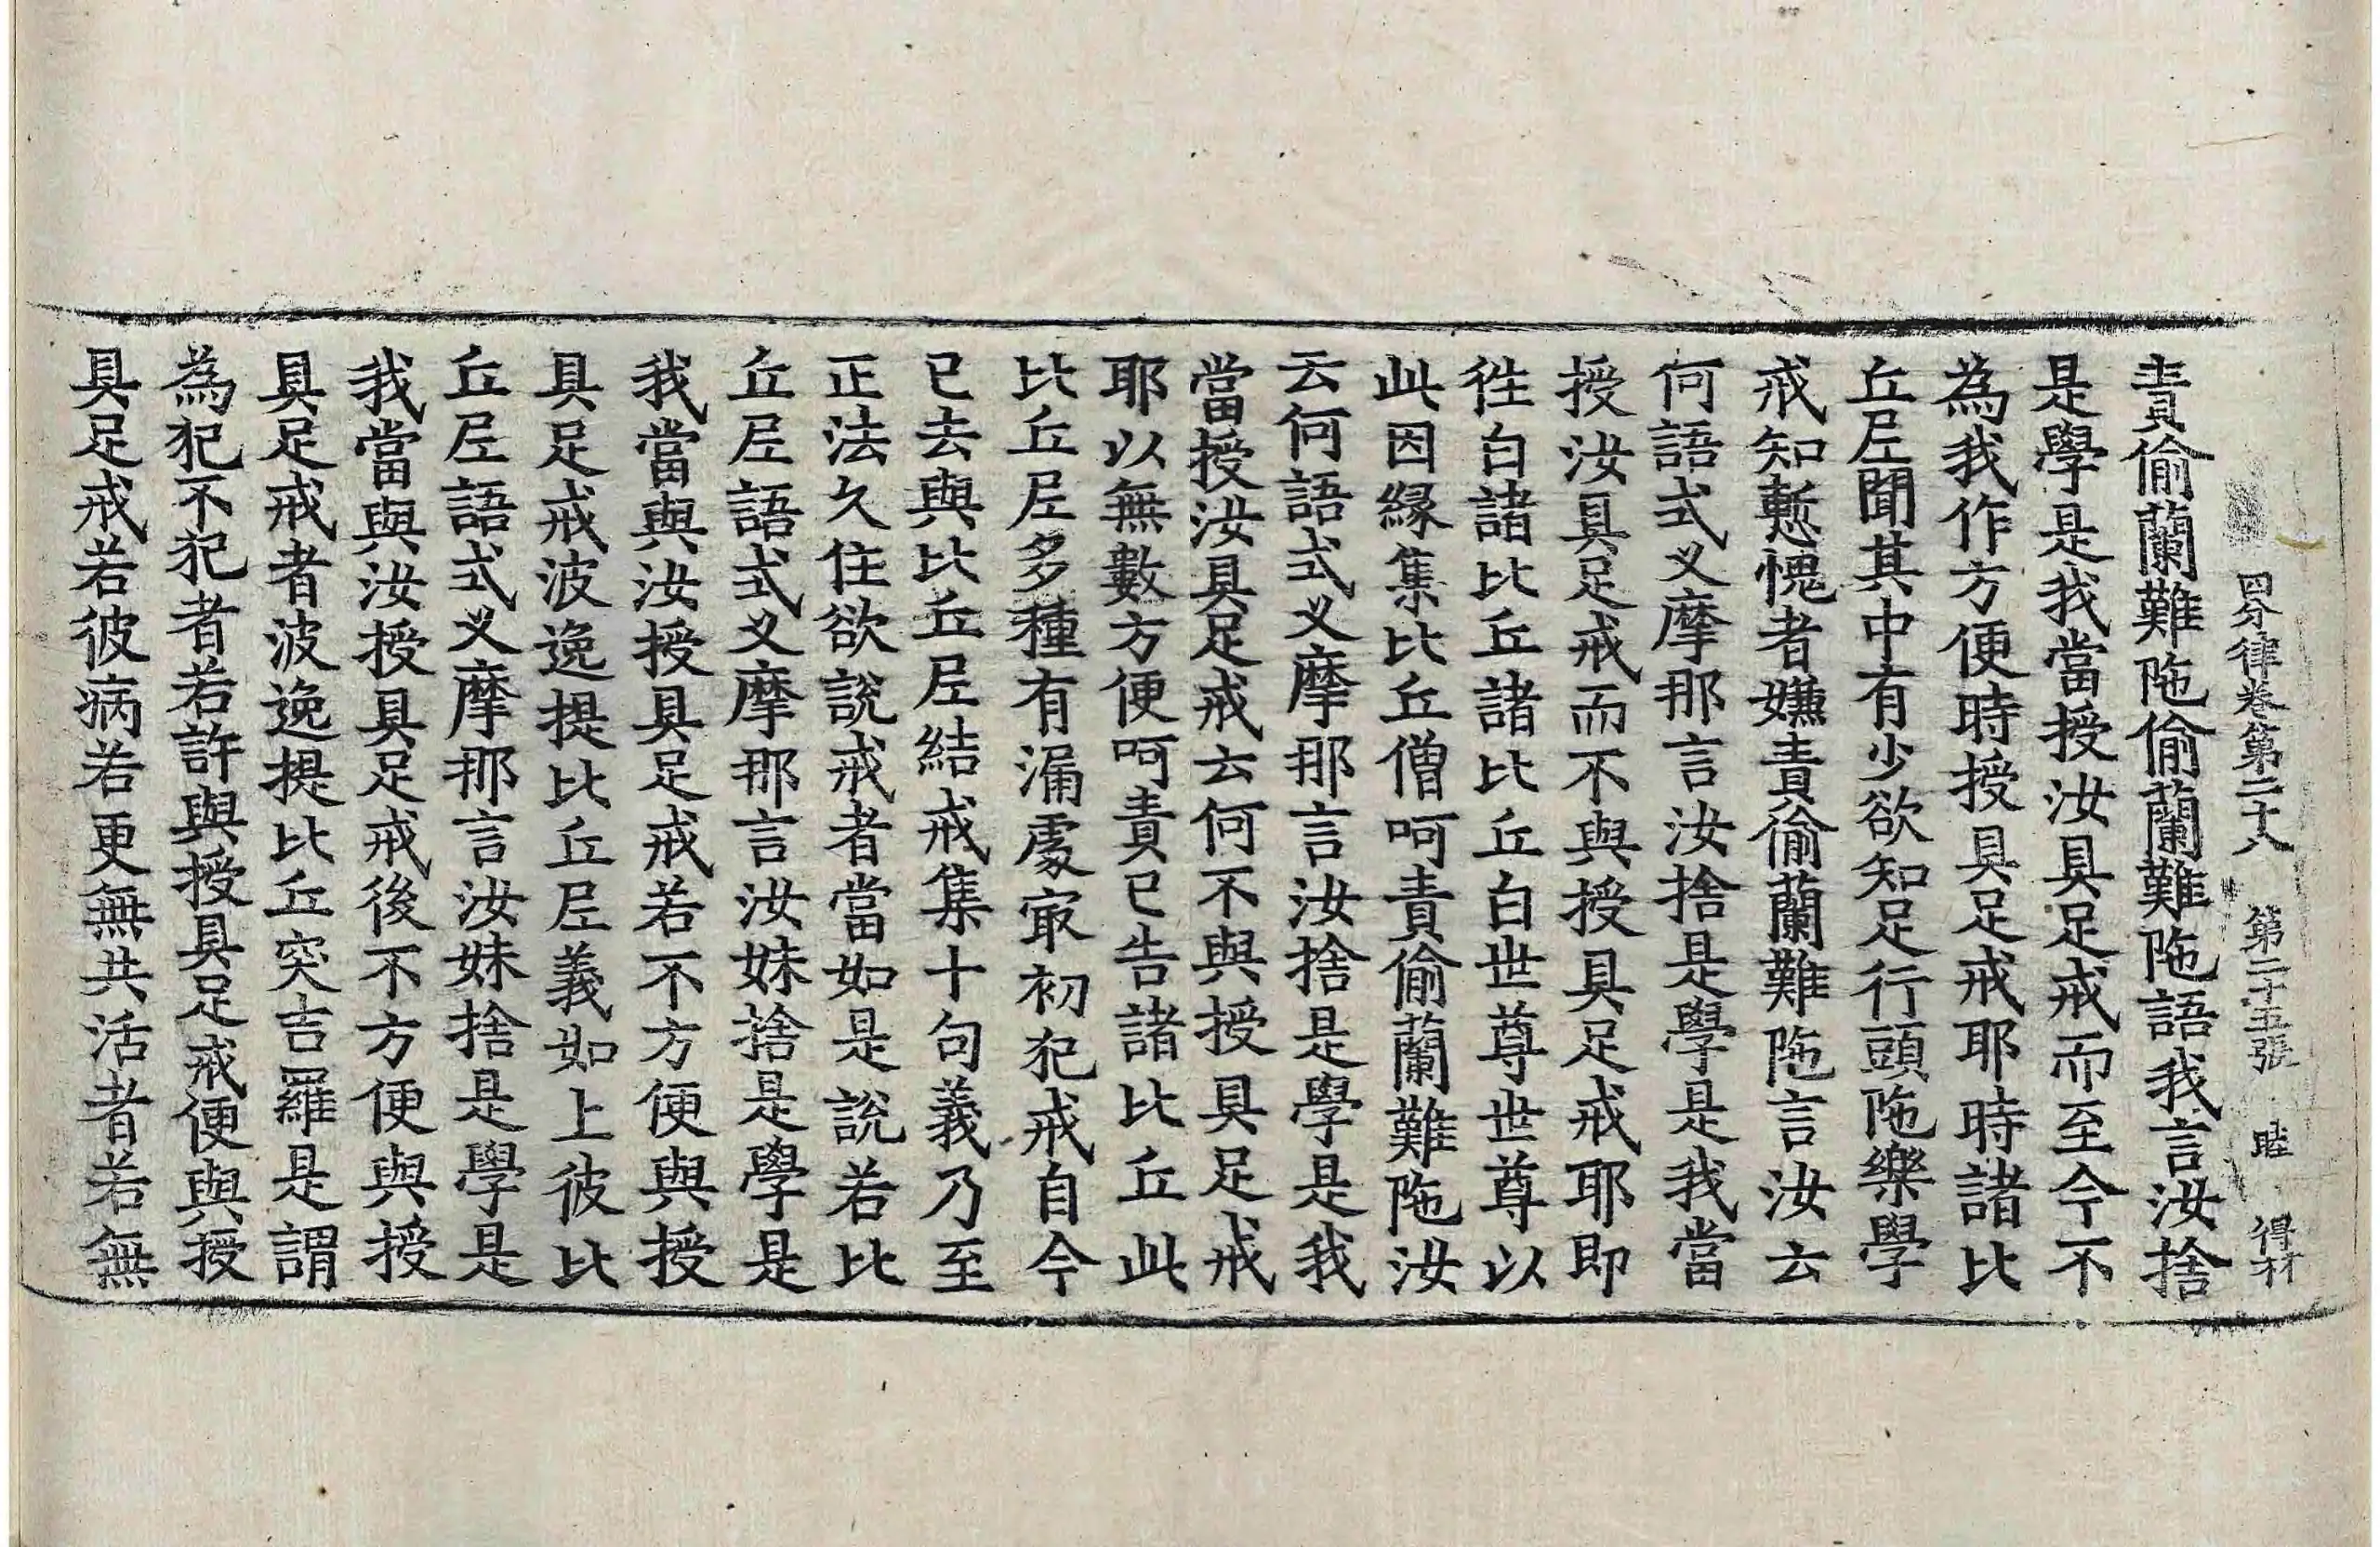 四分律卷第二十八 第二十五張 睦 得材
責偷蘭難陁偷蘭難陁語我言汝捨
是學是我當授汝具足戒而至今不
為我作方便時授具足戒耶時諸比
丘尼聞其中有少欲知足行頭陁樂學
戒知慙愧者嫌責偷蘭難陁言汝云
何語式叉摩那言汝捨是學是我當
授汝具足戒而不與授具足戒耶即
徃白諸比丘諸比丘白世尊世尊以
此因緣集比丘僧呵責偷蘭難陁汝
云何語式叉摩那言汝捨是學是我
當授汝具足戒云何不與授具足戒
耶以無數方便呵責已告諸比丘此
比丘尼多種有漏處冣初犯戒自今
已去與比丘尼結戒集十句義乃至
正法久住欲說戒者當如是說若比
丘尼語式叉摩那言汝妹捨是學是
我當與汝授具足戒若不方便與授
具足戒波逸提比丘尼義如上彼比
丘尼語式叉摩那言汝妹捨是學是
我當與汝授具足戒後不方便與授
具足戒者波逸提比丘突吉羅是謂
為犯不犯者若許與授具足戒便與授
具足戒若彼病若更無共活者若無